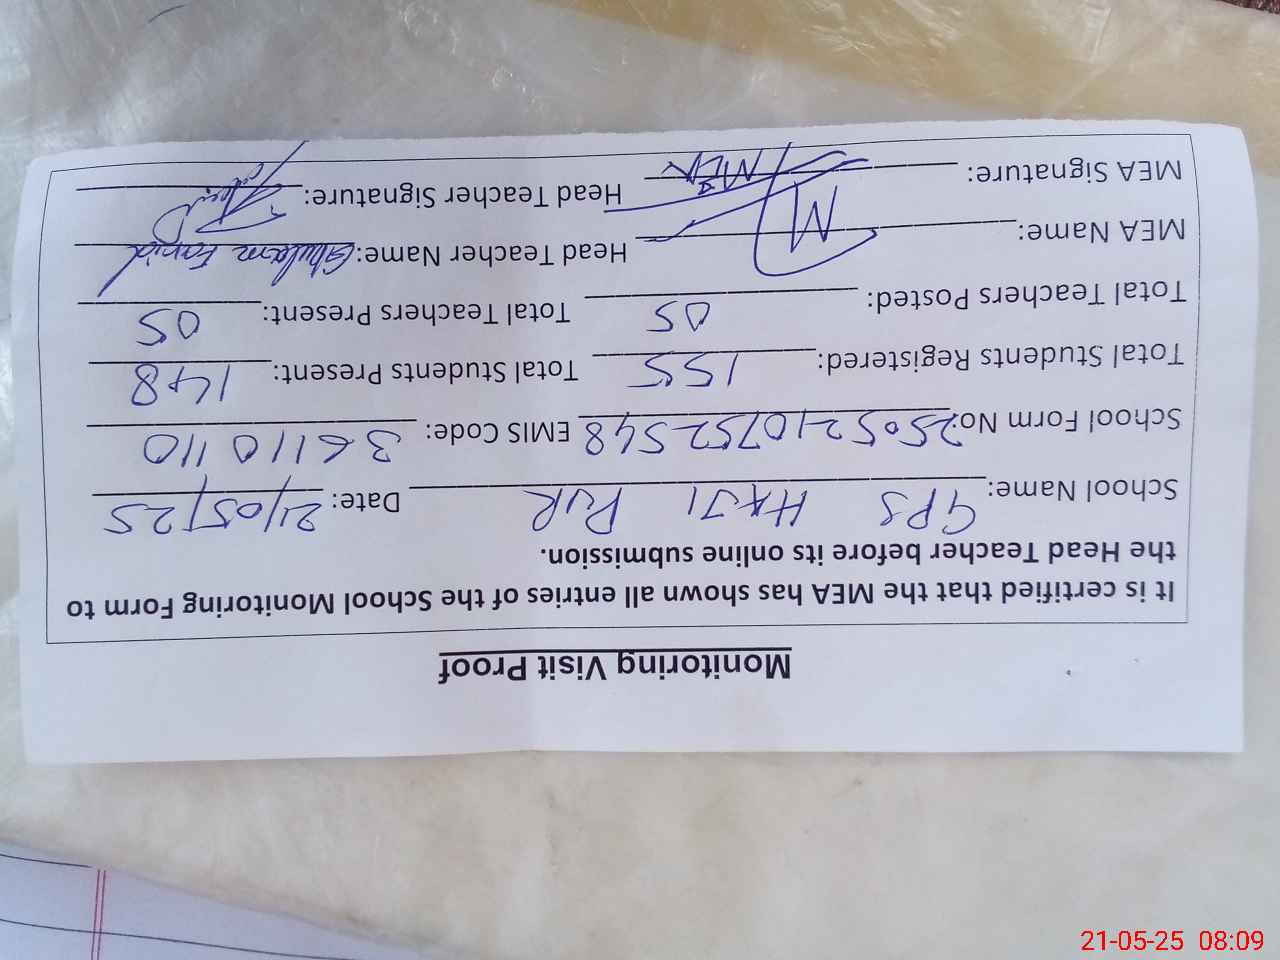 Monitoring Visit Proof
It is certified that the MEA has shown all entries of the School Monitoring Form to
the Head Teacher before its online submission.
School Name: GPS HAJI PUR Date: 21/05/25
School Form No: 2505210752548 EMIS Code: 36110110
Total Students Registered: 155 Total Students Present: 148
Total Teachers Posted: 05 Total Teachers Present: 05
MEA Name: Head Teacher Name: Ghulam Farid
MEA Signature: MEA Head Teacher Signature:
21-05-25 08:09